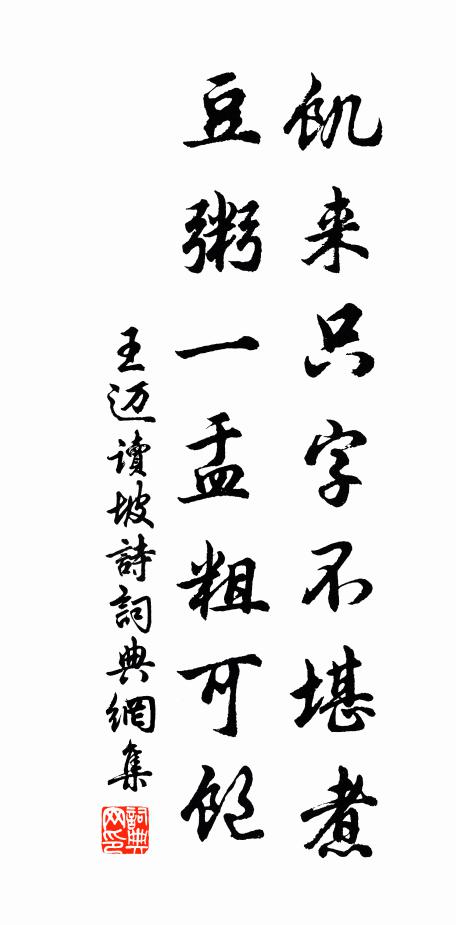 飢来只字不堪煮
豆粥一盂粗可飽
王迈讀坡詩詞典網集
詞典网印